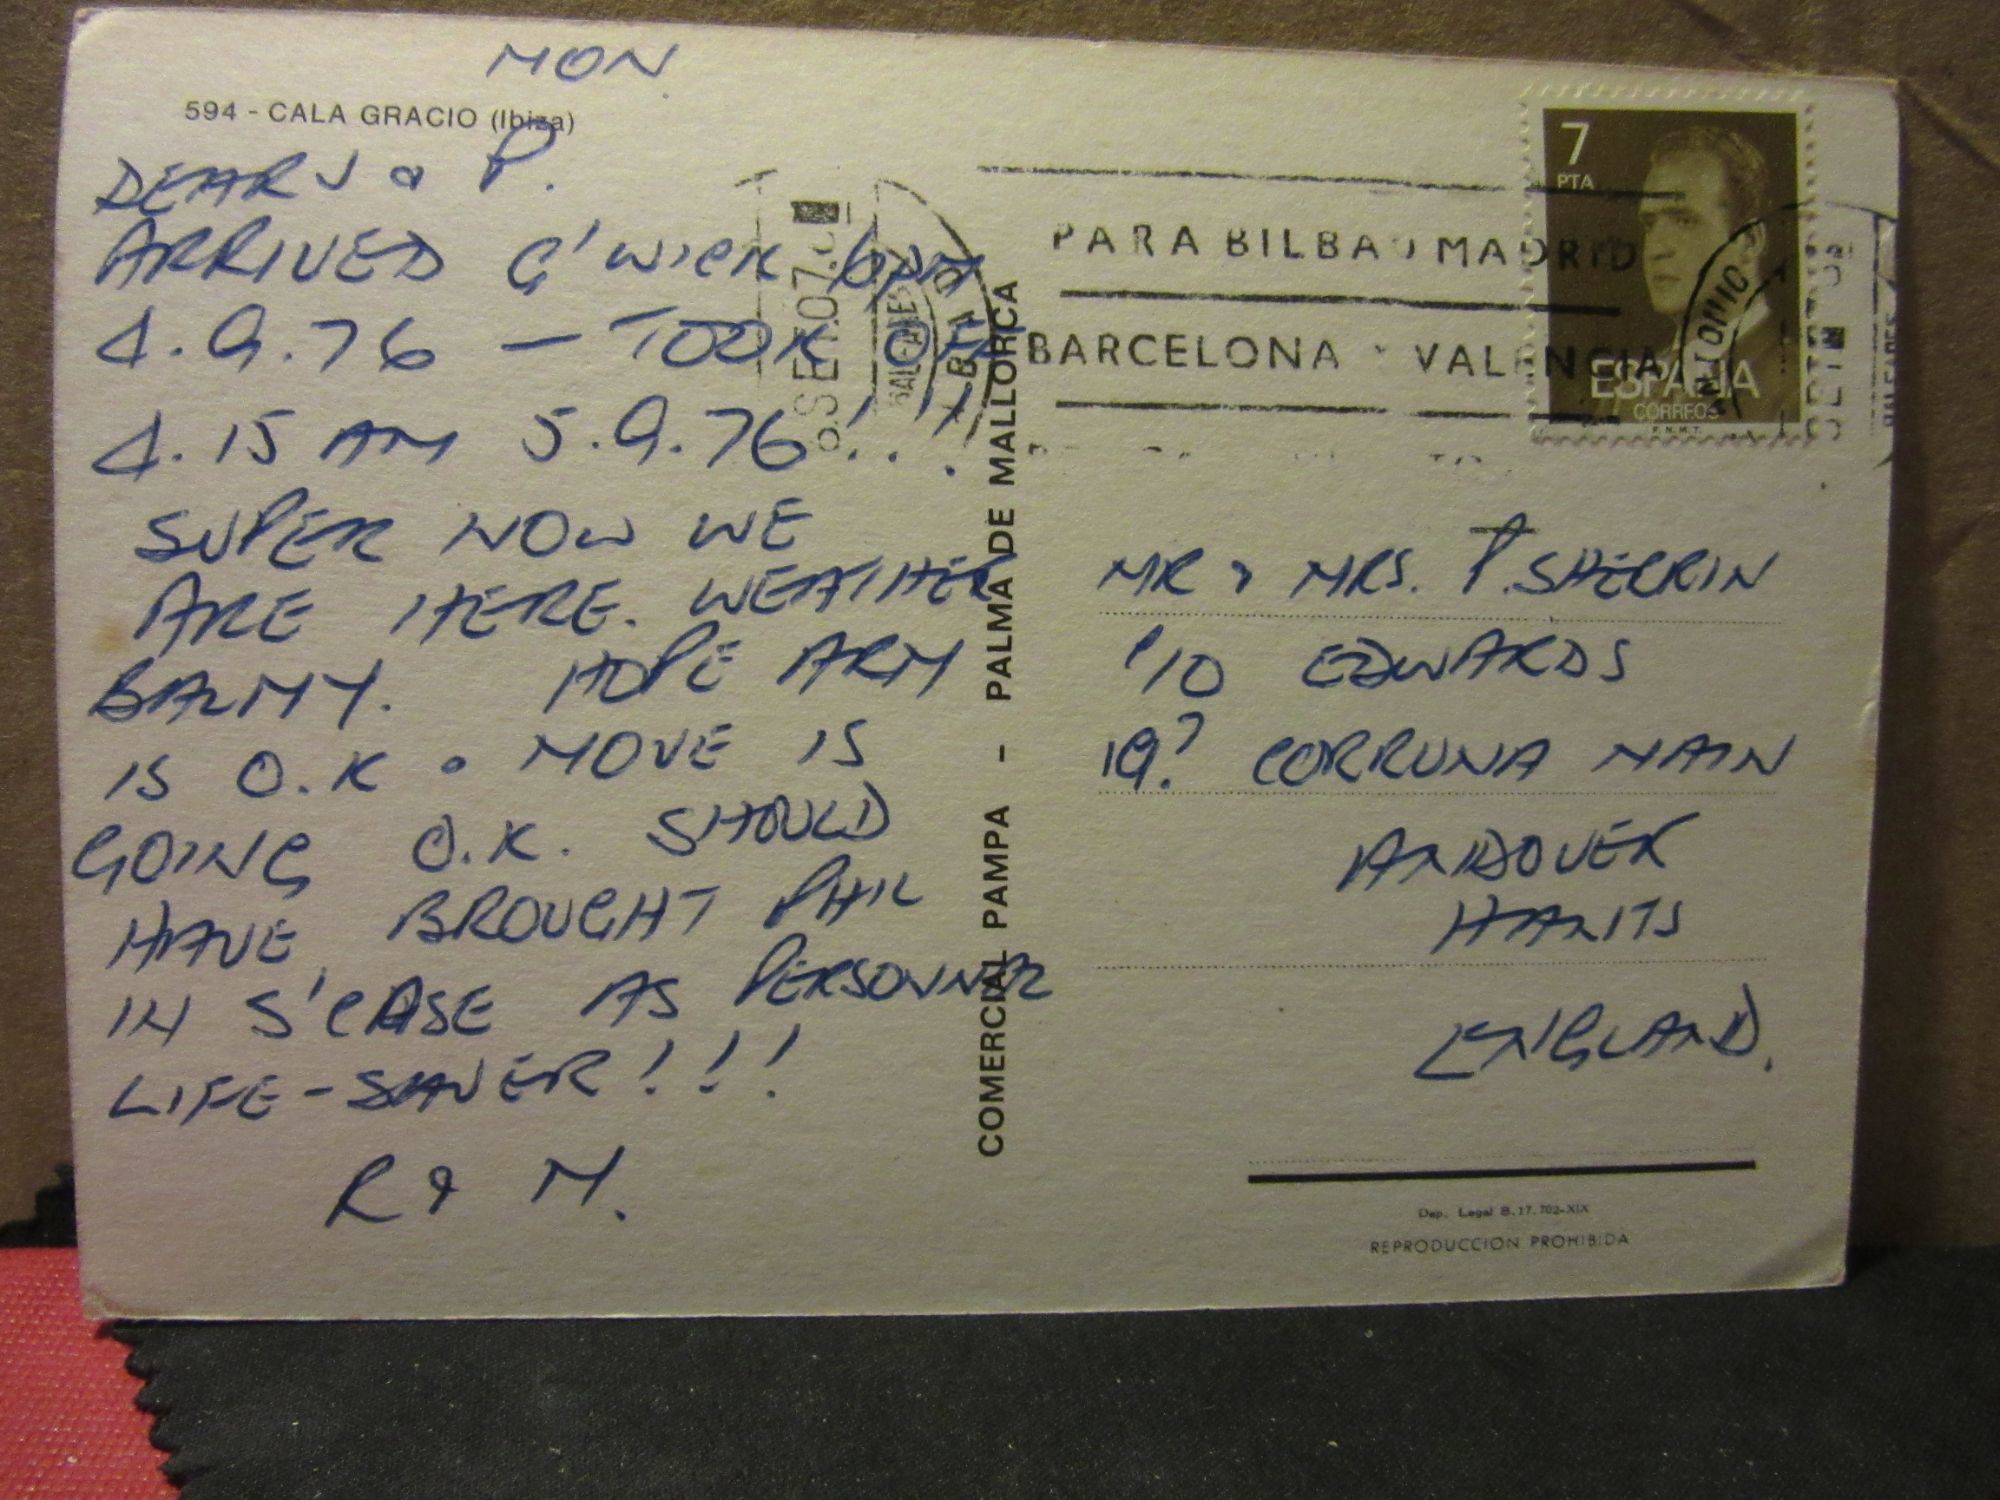 MON
594 - CALA GRACIO (Ibiza)
DEAR J & P.
ARRIVED G'WICK 6PM
4.9.76 — TOOK OFF
4.15 AM 5.9.76!!!
SUPER NOW WE
ARE HERE. WEATHER
BALMY. HOPE ARM
IS O.K. MOVE IS
GOING O.K. SHOULD
HAVE BROUGHT PHIL
IN S'CASE AS PERSONNAL
LIFE-SAVER!!!
R & M.
COMERCIAL PAMPA - PALMA DE MALLORCA
7
PTA
ESPAÑA
CORREOS
F.N.M.T.
PARA BILBAO MADRID
BARCELONA Y VALENCIA
MR & MRS. P. SHERRIN
10 EDWARDS
19? CORRUNA MAIN
ANDOVER
HANTS
ENGLAND.
Dep. Legal B.17.702-XIX
REPRODUCCION PROHIBIDA